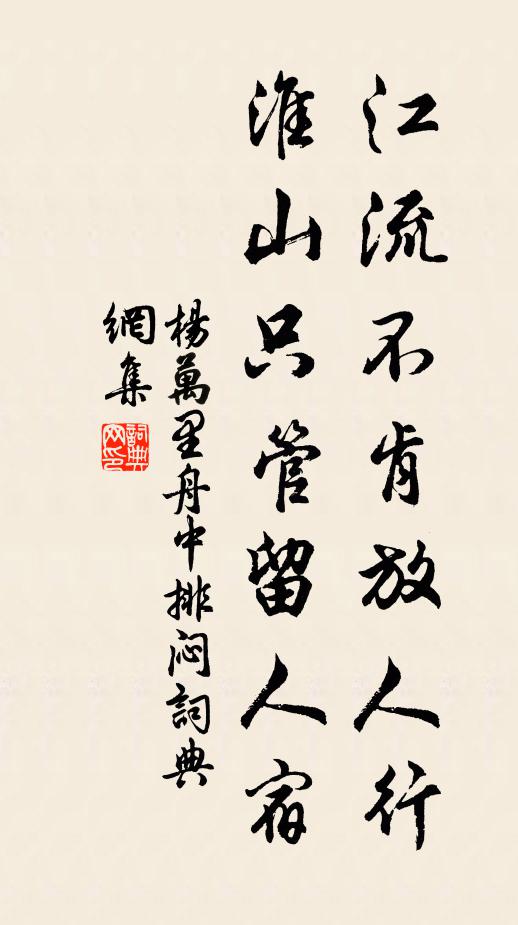 江流不肯放人行
淮山只管留人宿
楊萬里舟中排悶詞典
網集
詞典
网印